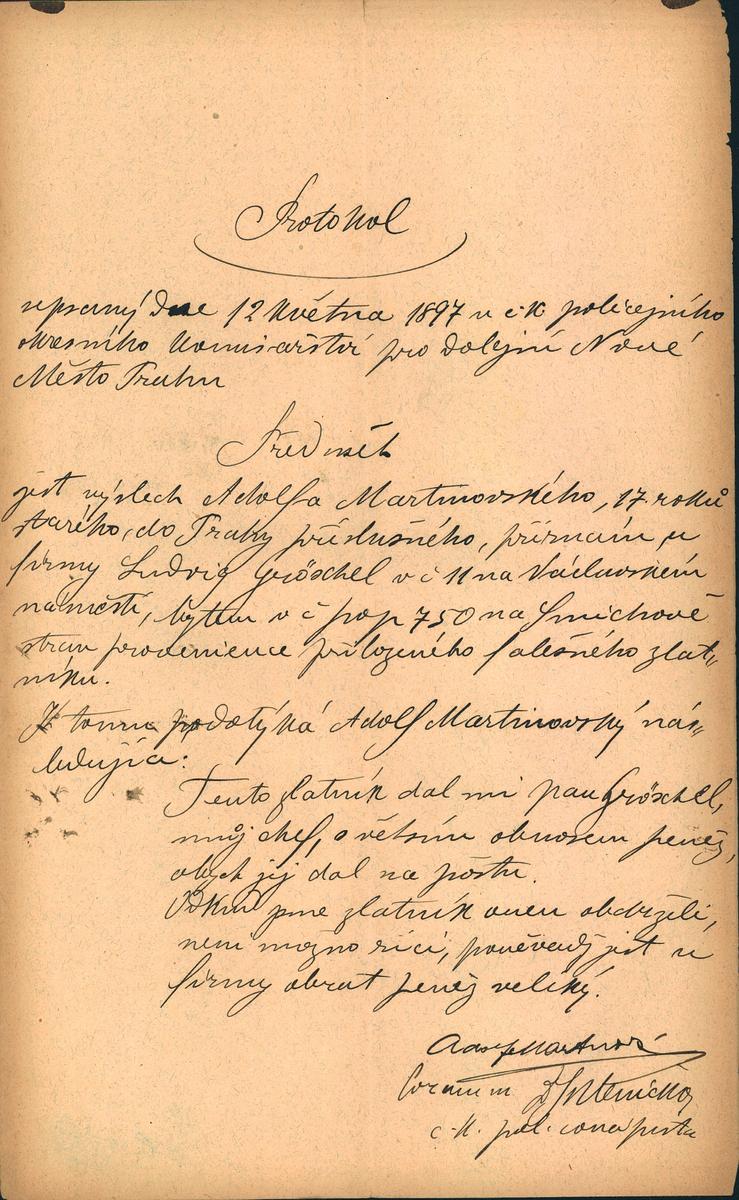 Protokol
sepsaný dne 12 Května 1897 u c k policejního
okresního komisařství pro dolejní Nové
Město Prahu
Předmět
jest výslech Adolfa Martinovského, 17. roků
starého, do Prahy příslušného, u
firmy Ludvig Gröschel v č 11 na Václavském
náměstí, bytem v č pop 750 na Smíchově
stran provenience přiloženého falešného zlat„
níku.
K tomu podotýká Adolf Martinovský nás„
ledující:
Tento zlatník dal mi pan Gröschel,
můj chef, s větším obnosem peněz,
abych jej dal na poštu.
Odkud jsme zlatník onen obdrželi,
není možno říci, poněvadž jest u
firmy obrat peněz veliký.
Adolf Martinovský
Coram m
c. k. pol.